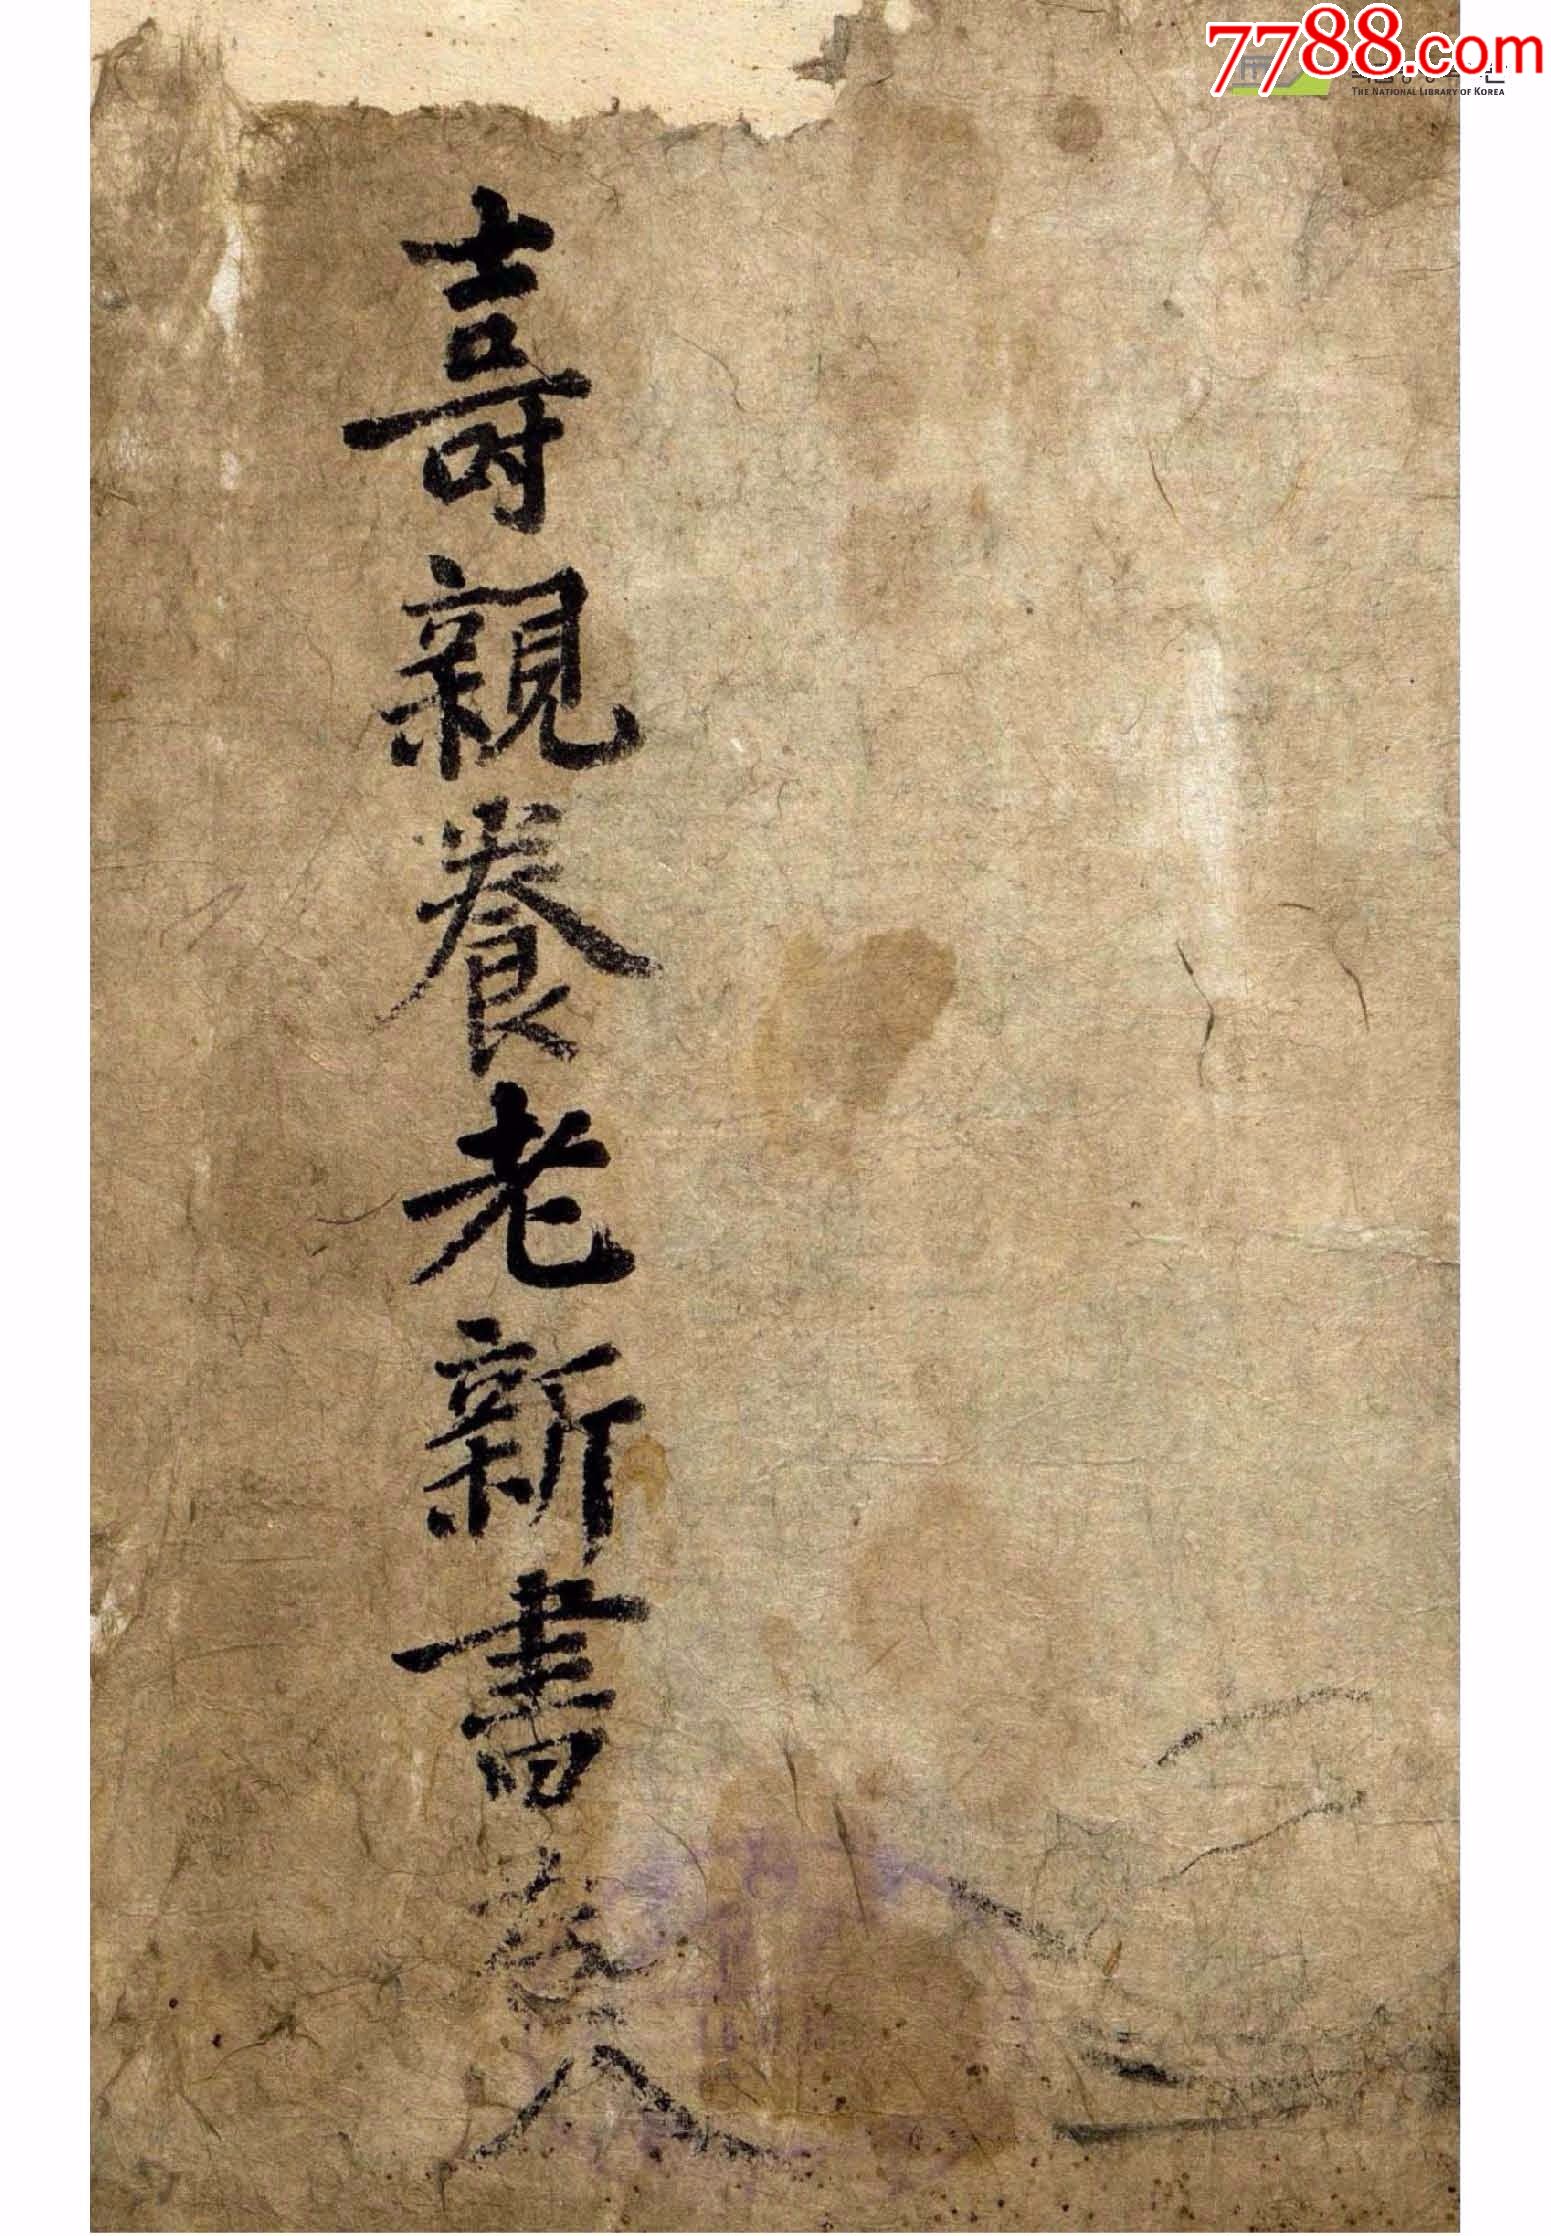 7788.com
THE NATIONAL LIBRARY OF KOREA
壽親養老新書卷八